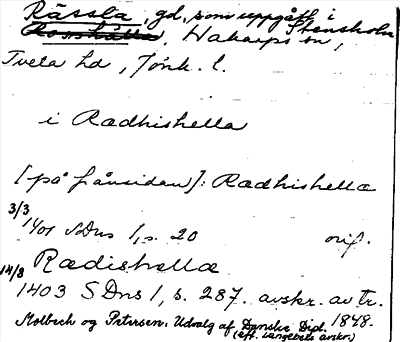 Rässla, gd, som uppgått i
Stensholm
Hakarps sn,
Tveta hd, Jönk. l.
i Radhishella
[på frånsidan]: Radhishella
3/3 1401 SDns 1, s. 20 orig.
Rædishellæ
14/8 1403 SDns 1, s. 287. avskr. av tr.
Molbech og Petersen: Udvalg af Danske Dipl. 1848.
(eft. Langebeks avskr.)